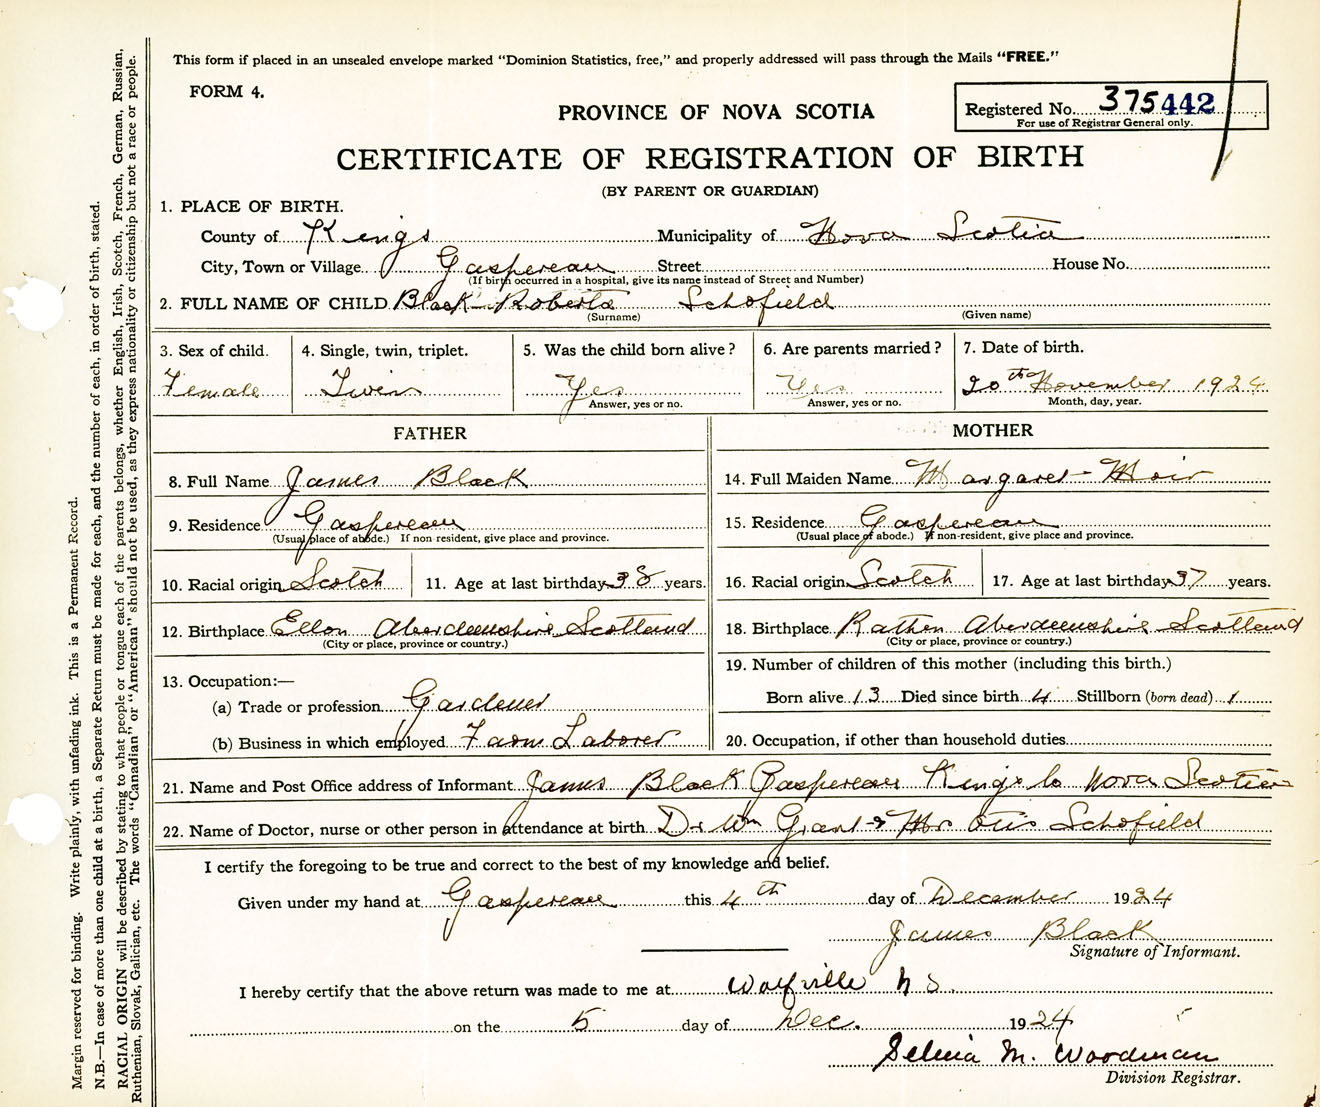 This form if placed in an unsealed envelope marked "Dominion Statistics, free," and properly addressed will pass through the Mails "FREE."
FORM 4.
Registered No. 375442
For use of Registrar General only.
PROVINCE OF NOVA SCOTIA
CERTIFICATE OF REGISTRATION OF BIRTH
(BY PARENT OR GUARDIAN)
1. PLACE OF BIRTH.
County of Kings Municipality of Nova Scotia
City, Town or Village Gaspereau Street House No.
(If birth occurred in a hospital, give its name instead of Street and Number)
2. FULL NAME OF CHILD Black Roberta Schofield
(Surname) (Given name)
3. Sex of child. 4. Single, twin, triplet. 5. Was the child born alive? 6. Are parents married? 7. Date of birth.
Female Twin Yes Yes 20th November 1924
Answer, yes or no. Answer, yes or no. Month, day, year.
FATHER MOTHER
8. Full Name James Black 14. Full Maiden Name Margaret Moir
9. Residence Gaspereau 15. Residence Gaspereau
(Usual place of abode.) If non-resident, give place and province. (Usual place of abode.) If non-resident, give place and province.
10. Racial origin Scotch 11. Age at last birthday 38 years. 16. Racial origin Scotch 17. Age at last birthday 37 years.
12. Birthplace Ellon Aberdeenshire Scotland 18. Birthplace Rathen Aberdeenshire Scotland
(City or place, province or country.) (City or place, province or country.)
13. Occupation:— 19. Number of children of this mother (including this birth.)
(a) Trade or profession Gardener Born alive 13 Died since birth 4 Stillborn (born dead) 1
(b) Business in which employed Farm Laborer 20. Occupation, if other than household duties
21. Name and Post Office address of Informant James Black Gaspereau Kings Co Nova Scotia
22. Name of Doctor, nurse or other person in attendance at birth Dr Wm Grant & Mrs Otis Schofield
I certify the foregoing to be true and correct to the best of my knowledge and belief.
Given under my hand at Gaspereau this 4th day of December 1924
James Black
Signature of Informant.
I hereby certify that the above return was made to me at Wolfville N S.
on the 5 day of Dec. 1924
Selina M. Woodman
Division Registrar.
Margin reserved for binding. Write plainly, with unfading ink. This is a Permanent Record.
N.B.—In case of more than one child at a birth, a Separate Return must be made for each, and the number of each, in order of birth, stated.
RACIAL ORIGIN will be described by stating to what people or tongue each of the parents belongs, whether English, Irish, Scotch, French, German, Russian,
Ruthenian, Slovak, Galician, etc. The words "Canadian" or "American" should not be used, as they express nationality or citizenship but not a race or people.